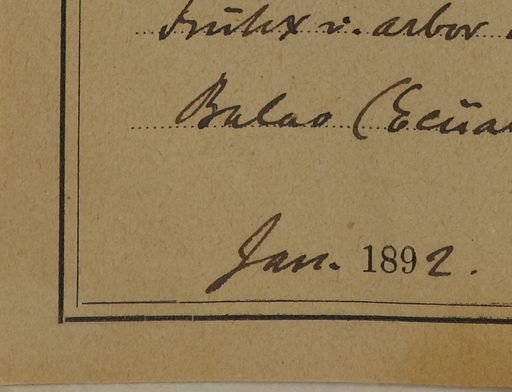 Frutex v. arbor
Balao (Ecua
Jan. 1892.